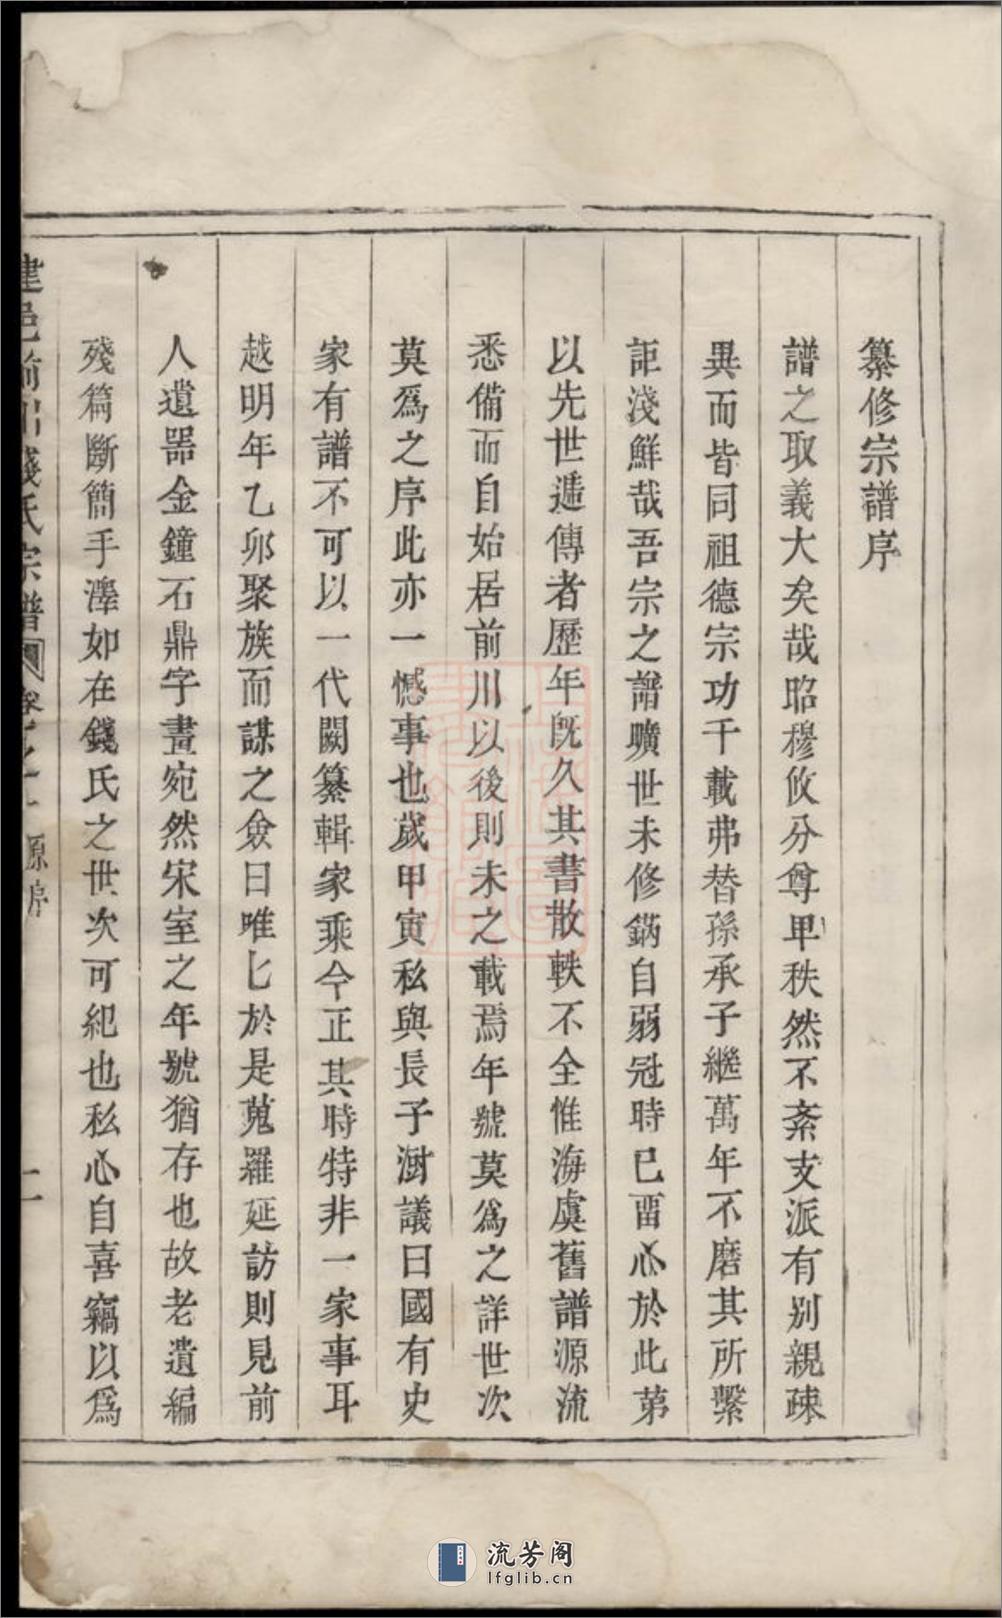 纂修宗譜序
譜之取義大矣哉昭穆攸分尊卑秩然不紊支派有别親疎
異而皆同祖德宗功千載弗替孫承子繼萬年不磨其所繫
詎淺鮮哉吾宗之譜曠世未修鏑自弱冠時已畱心於此第
以先世遞傳者歷年旣久其書散軼不全惟海虞舊譜源流
悉備而自始居前川以後則未之載焉年號莫爲之詳世次
莫爲之序此亦一憾事也歲甲寅私與長子澍議曰國有史
家有譜不可以一代闕纂輯家乘今正其時特非一家事耳
越明年乙卯聚族而謀之僉曰唯匕於是蒐羅延訪則見前
人遺噐金鐘石鼎字畫宛然宋室之年號猶存也故老遺編
殘篇斷簡手澤如在錢氏之世次可紀也私心自喜竊以爲
錢氏宗譜 卷之一 源序 一
流芳阁
lfglib.cn